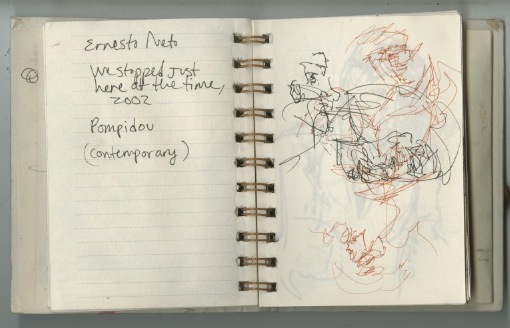 Ernesto Neto
We stopped just
here at the time,
2002
Pompidou
(contemporary)